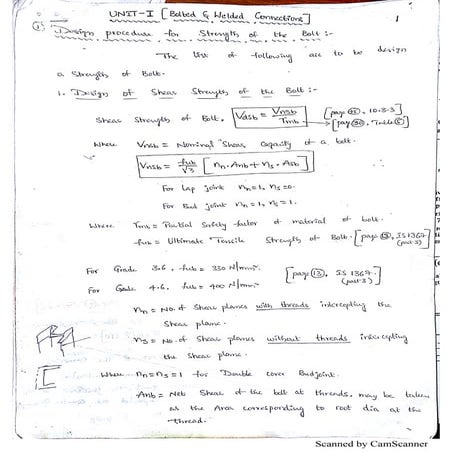 UNIT-I [Bolted & Welded Connections]
1
1) Design procedure for Strength of the Bolt :-
The list of following are to be design
a Strength of Bolt.
1. Design of Shear Strength of the Bolt :-
Shear Strength of Bolt, Vdsb = Vnsb / γmb [page , 10.3.3]
[page 30, Table 5]
Where Vnsb = Nominal Shear Capacity of a bolt.
Vnsb = fub/√3 [nn.Anb + ns.Asb]
For Lap joint nn=1, ns=0.
For Bud joint nn=1, ns=1.
Where γmb = Partial Safety factor of material of bolt.
fub = Ultimate Tensile Strength of Bolt. [page 13, IS 1367 (part-3)]
For Grade 3.6, fub = 330 N/mm². [page 13, IS 1367 (part-3)]
For Grade 4.6, fub = 400 N/mm².
nn = No. of Shear planes with threads intercepting the
Shear plane.
ns = No. of Shear planes without threads intercepting
the Shear plane.
Where nn=ns=1 for Double cover Budjoint.
Anb = Net Shear of the bolt at threads, may be taken
as the Area corresponding to root dia at the
thread.
Scanned by CamScanner